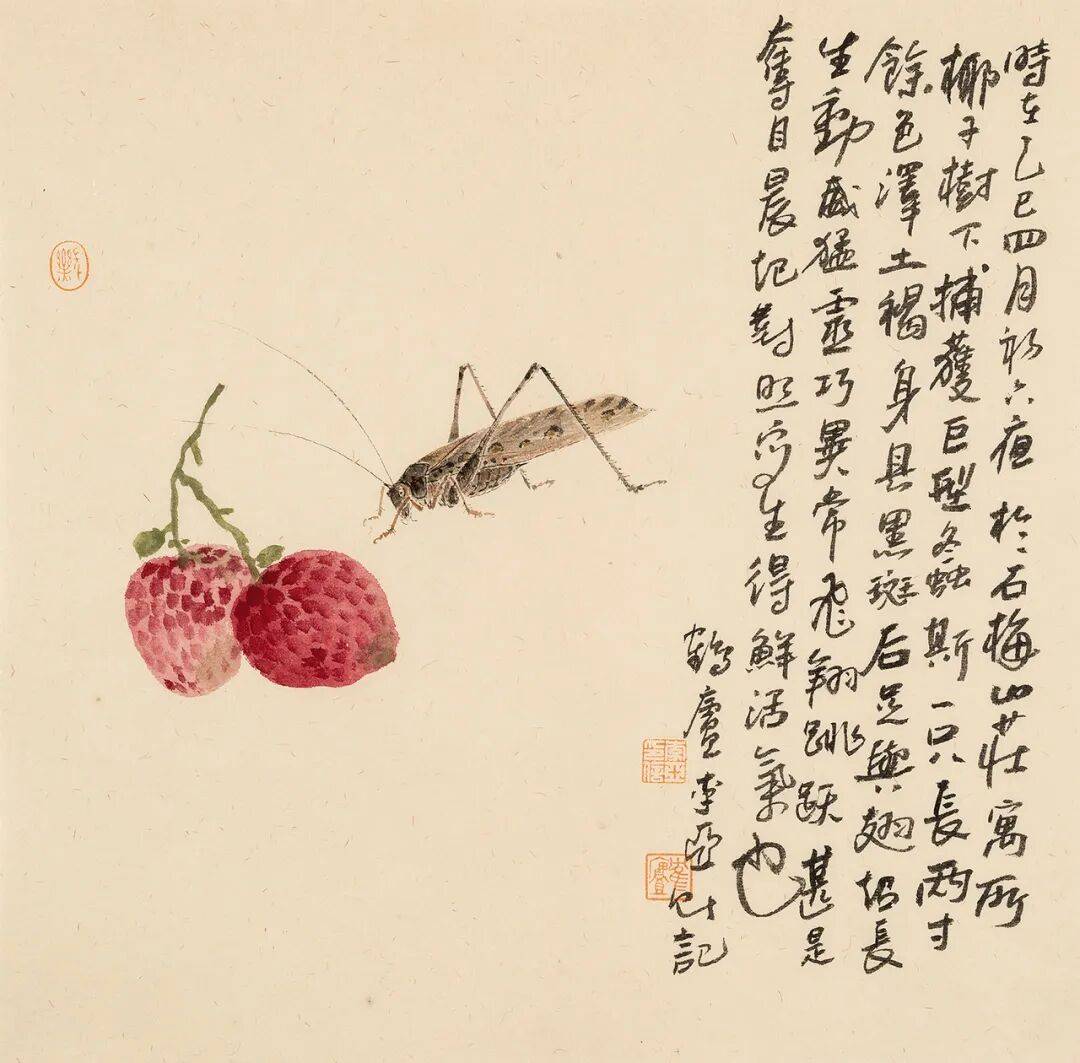 時在乙巳四月初六夜於石梅山莊寓所
椰子樹下捕獲巨型冬螽斯一只長兩寸
餘色澤土褐身具黑斑后足與翅均長
生動威猛靈巧異常飛翔跳跃甚是
奪目晨起對照寫生得鮮活氣也
鶴廬李亞 記